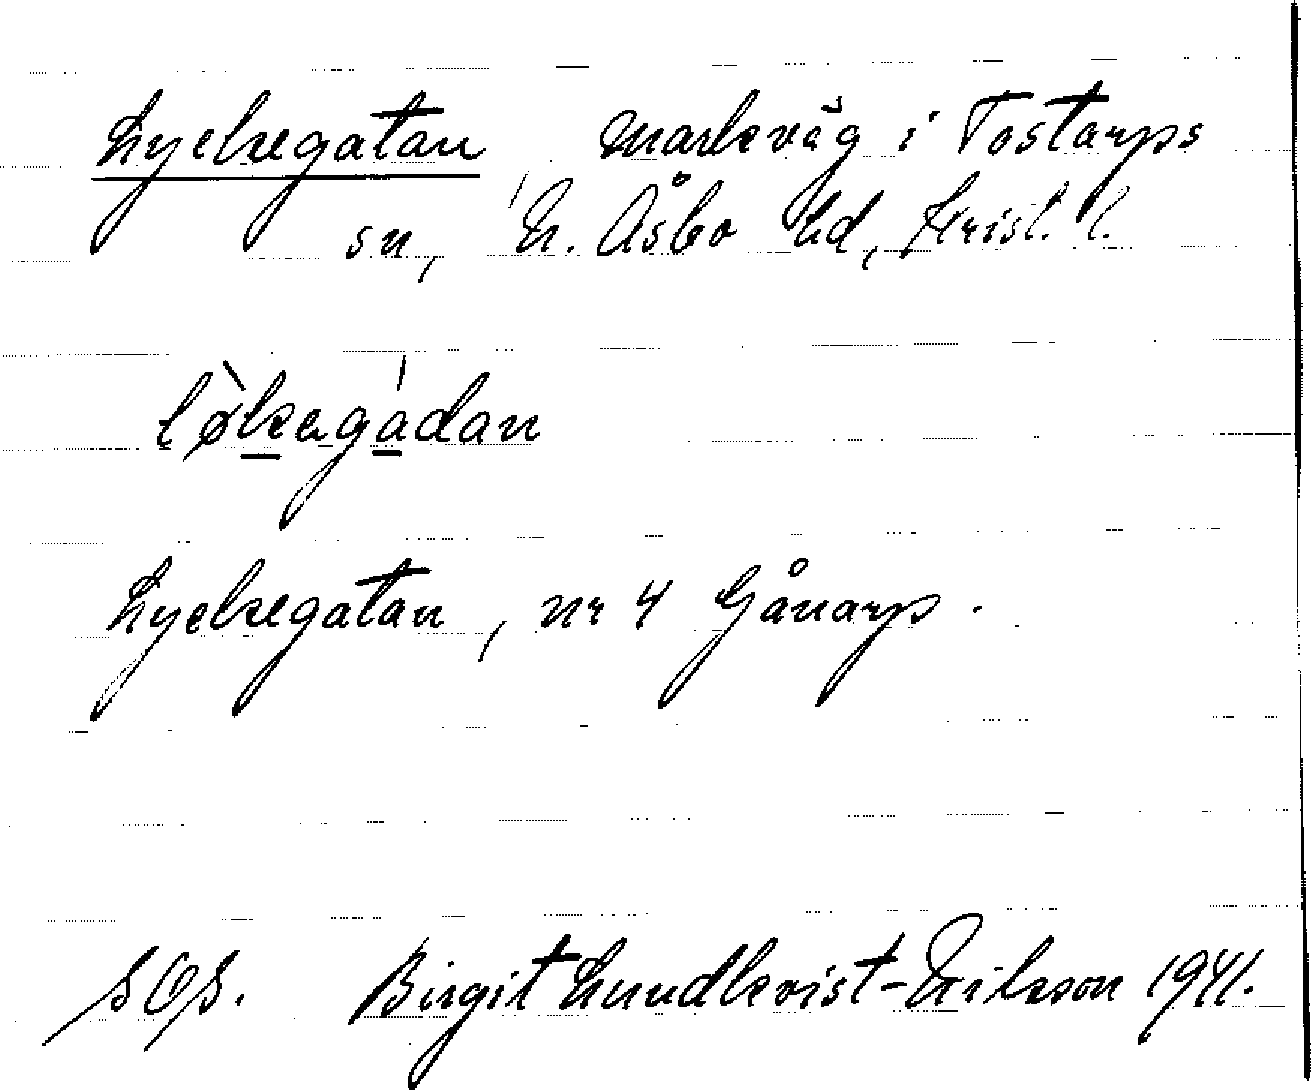 Lyckegatan, markväg i Tostarps
sn, N. Åsbo hd, Krist. l.
løkagádan
Lyckegatan, nr 4 Gånarp.
SOS. Birgit Lundkvist-Nilsson 1941.